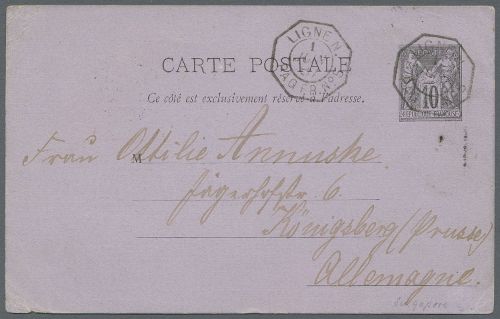 LIGNE N
1
PAQ. FR. No 5
CARTE POSTALE
Ce côté est exclusivement réservé à l'adresse.
10
REPUBLIQUE FRANÇAISE
M
Frau Ottilie Annuske
Jägerhofstr. 6.
Königsberg (Prusse)
Allemagne.
Singapore